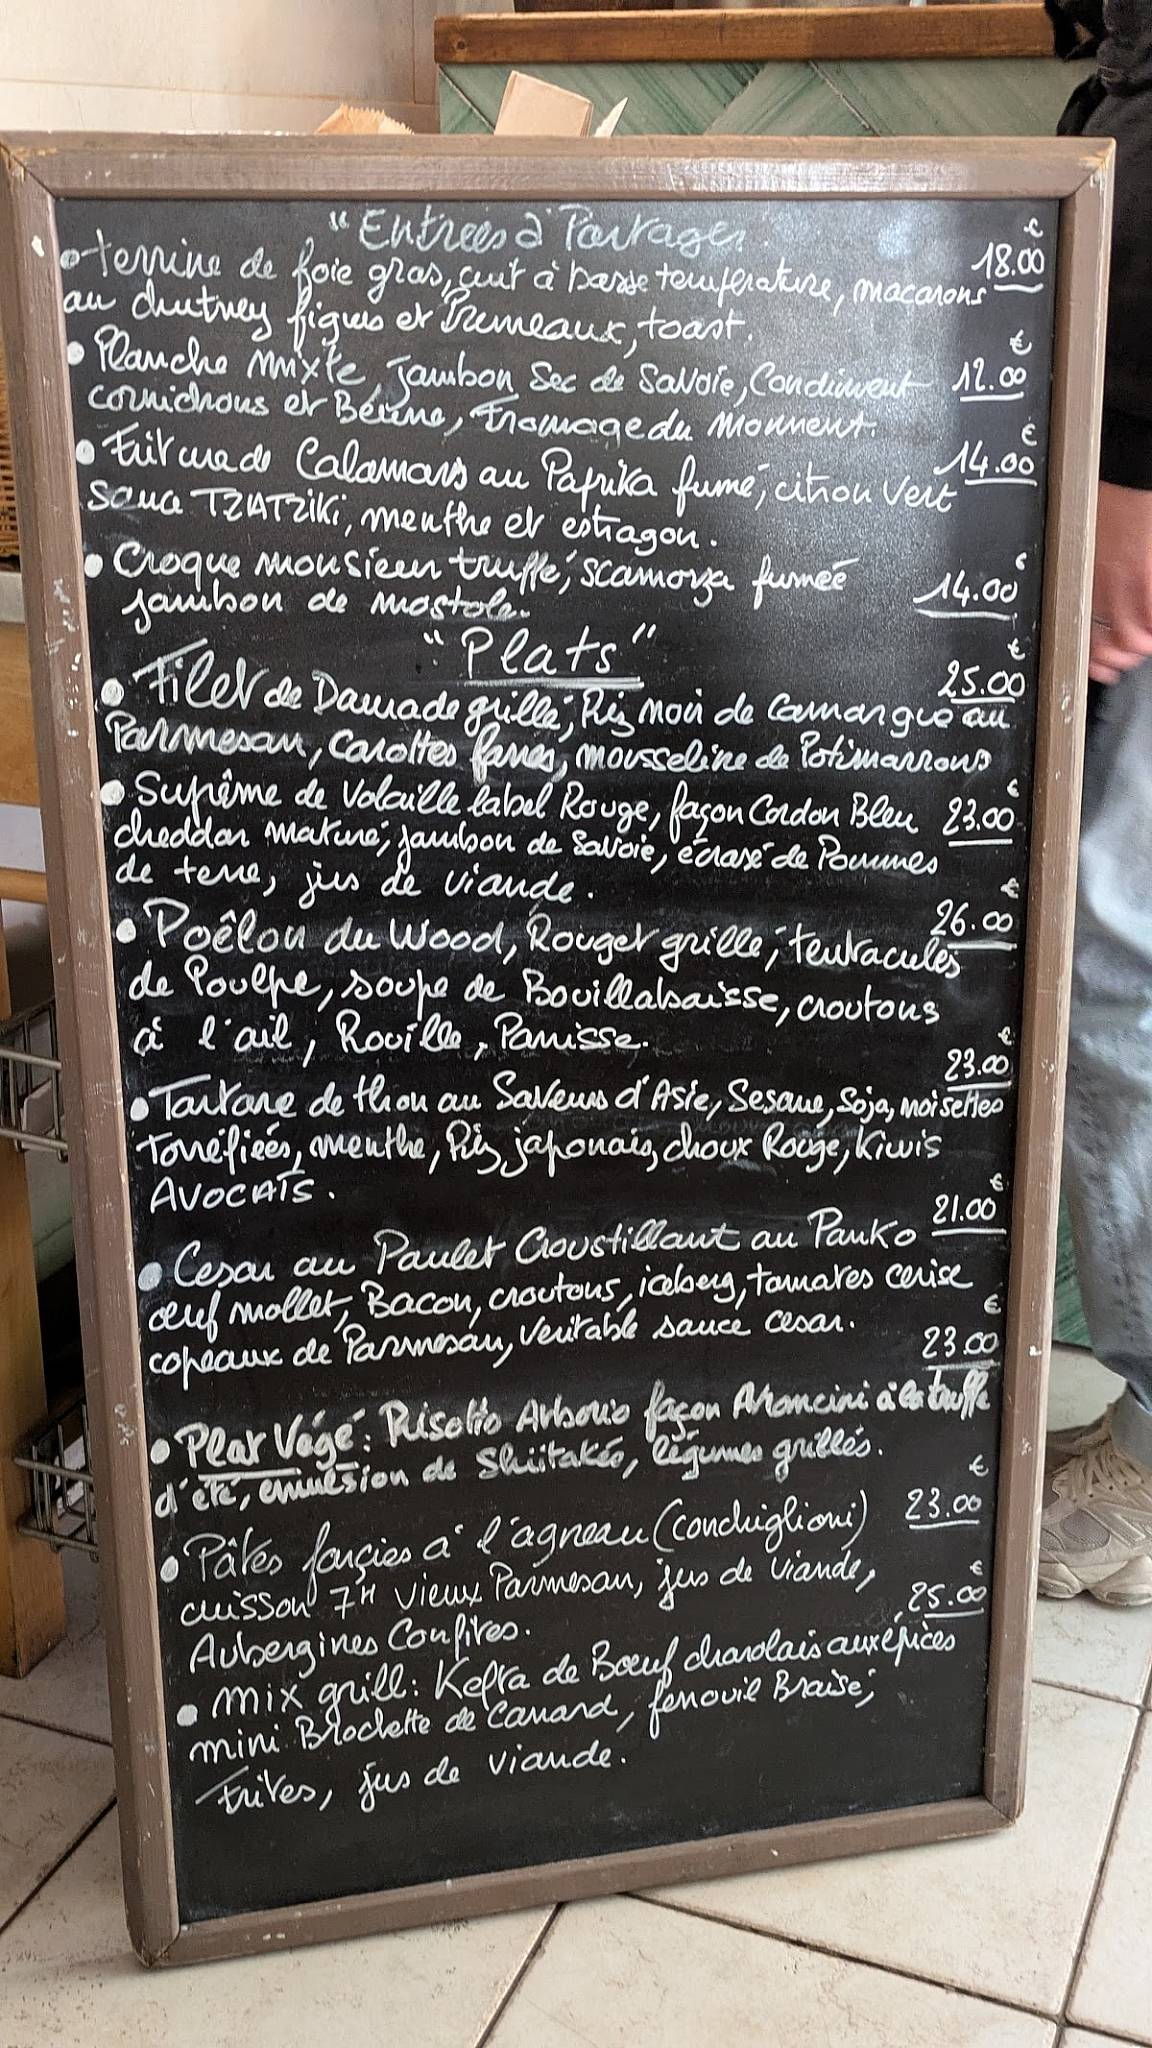 "Entrees à Partager
€
• terrine de foie gras, cuit à basse température, macarons 18.00
au chutney figues et Pruneaux, toast.
€
• Planche mixte, jambon Sec de Savoie, Condiment 12.00
cornichons et Beurre, Fromage du Moment.
€
• Friture de Calamars au Paprika fumé, citron Vert 14.00
sauce TZIATZIKI, menthe et estragon.
€
• Croque monsieur truffé, scamorza fumée 14.00
jambon de
"Plats"
€
25.00
• Filet de Daurade grillé, Riz noir de Camargue au
Parmesan, Carottes fanes, mousseline de Potimarrons
€
• Suprême de Volaille label Rouge, façon Cordon Bleu 23.00
cheddar maturé, jambon de Savoie, écrasé de Pommes
de terre, jus de viande.
€
26.00
• Poêlon du Wood, Rouget grillé, tentacules
de Poulpe, soupe de Bouillabaisse, croutons
à l'ail, Rouille, Panisse.
€
23.00
• Tartare de thon au Saveurs d'Asie, Sesame, Soja, noisettes
Torréfiées, menthe, Riz japonais, choux Rouge, Kiwis
AVOCATS.
€
21.00
• Cesar au Poulet Croustillant au Panko
œuf mollet, Bacon, croutons, iceberg, tomates cerise
copeaux de Parmesan, Veritable sauce cesar.
€
23.00
• Plat Végé: Risotto Arborio façon Arancini à la truffe
d'été, emulsion de Shiitaké, légumes grillés.
€
23.00
• Pâtes farçies à l'agneau (conchiglioni)
cuisson 7H Vieux Parmesan, jus de viande,
Aubergines Confites.
€
25.00
• mix grill: Kefta de Bœuf charolais aux épices
mini Brochette de Canard, fenouil Braisé,
frites, jus de viande.